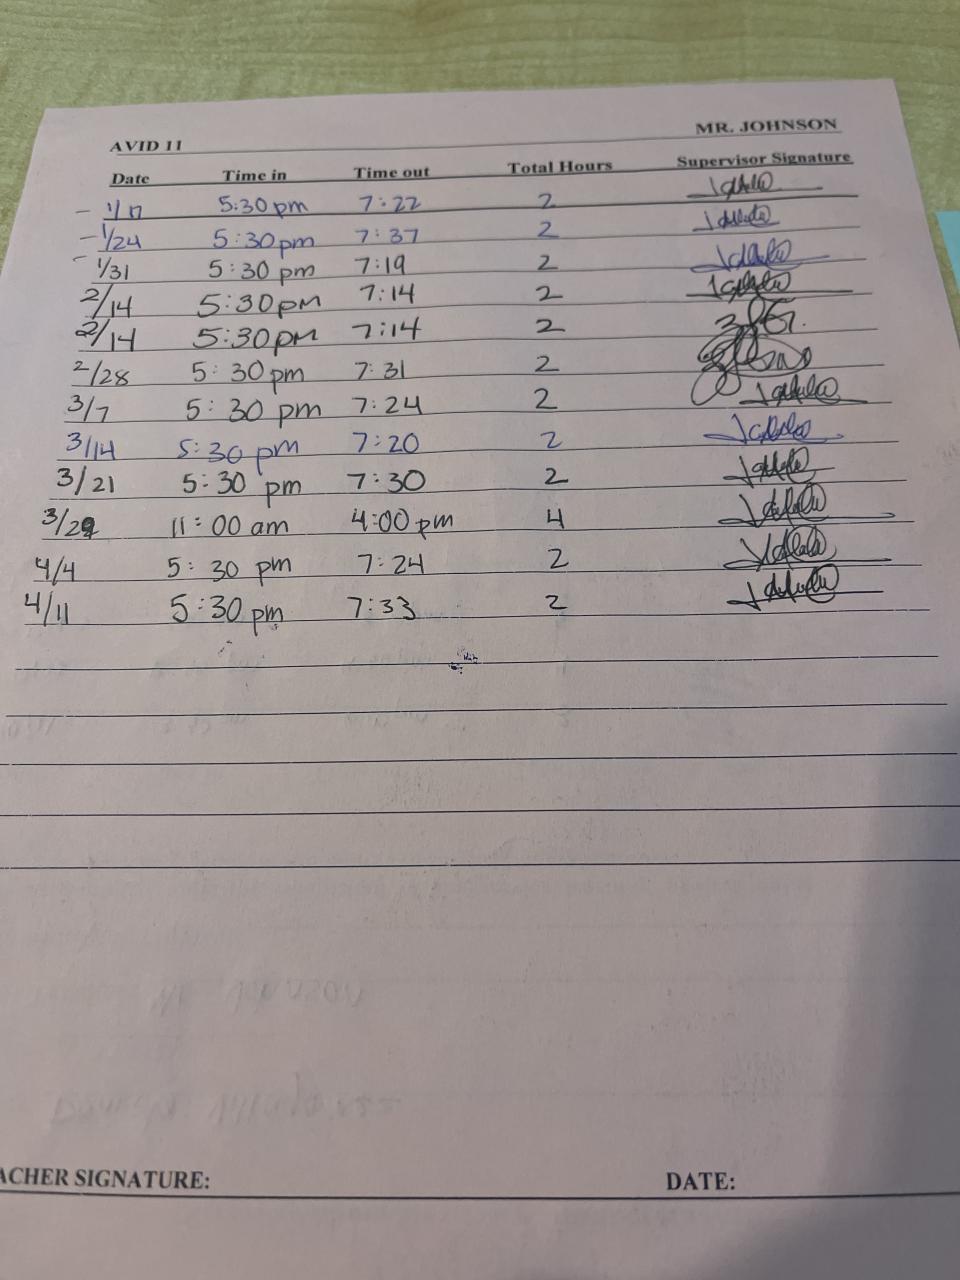 AVID 11 MR. JOHNSON
Date Time in Time out Total Hours Supervisor Signature
1/17 5:30 pm 7:22 2
1/24 5:30pm 7:37 2
1/31 5:30 pm 7:19 2
2/14 5:30pm 7:14 2
2/14 5:30pm 7:14 2
2/28 5:30pm 7:31 2
3/7 5:30 pm 7:24 2
3/14 5:30 pm 7:20 2
3/21 5:30 pm 7:30 2
11:00 am 4:00 pm 4
4/4 5:30 pm 7:24 2
4/11 5:30 pm 7:33 2
ACHER SIGNATURE: DATE: